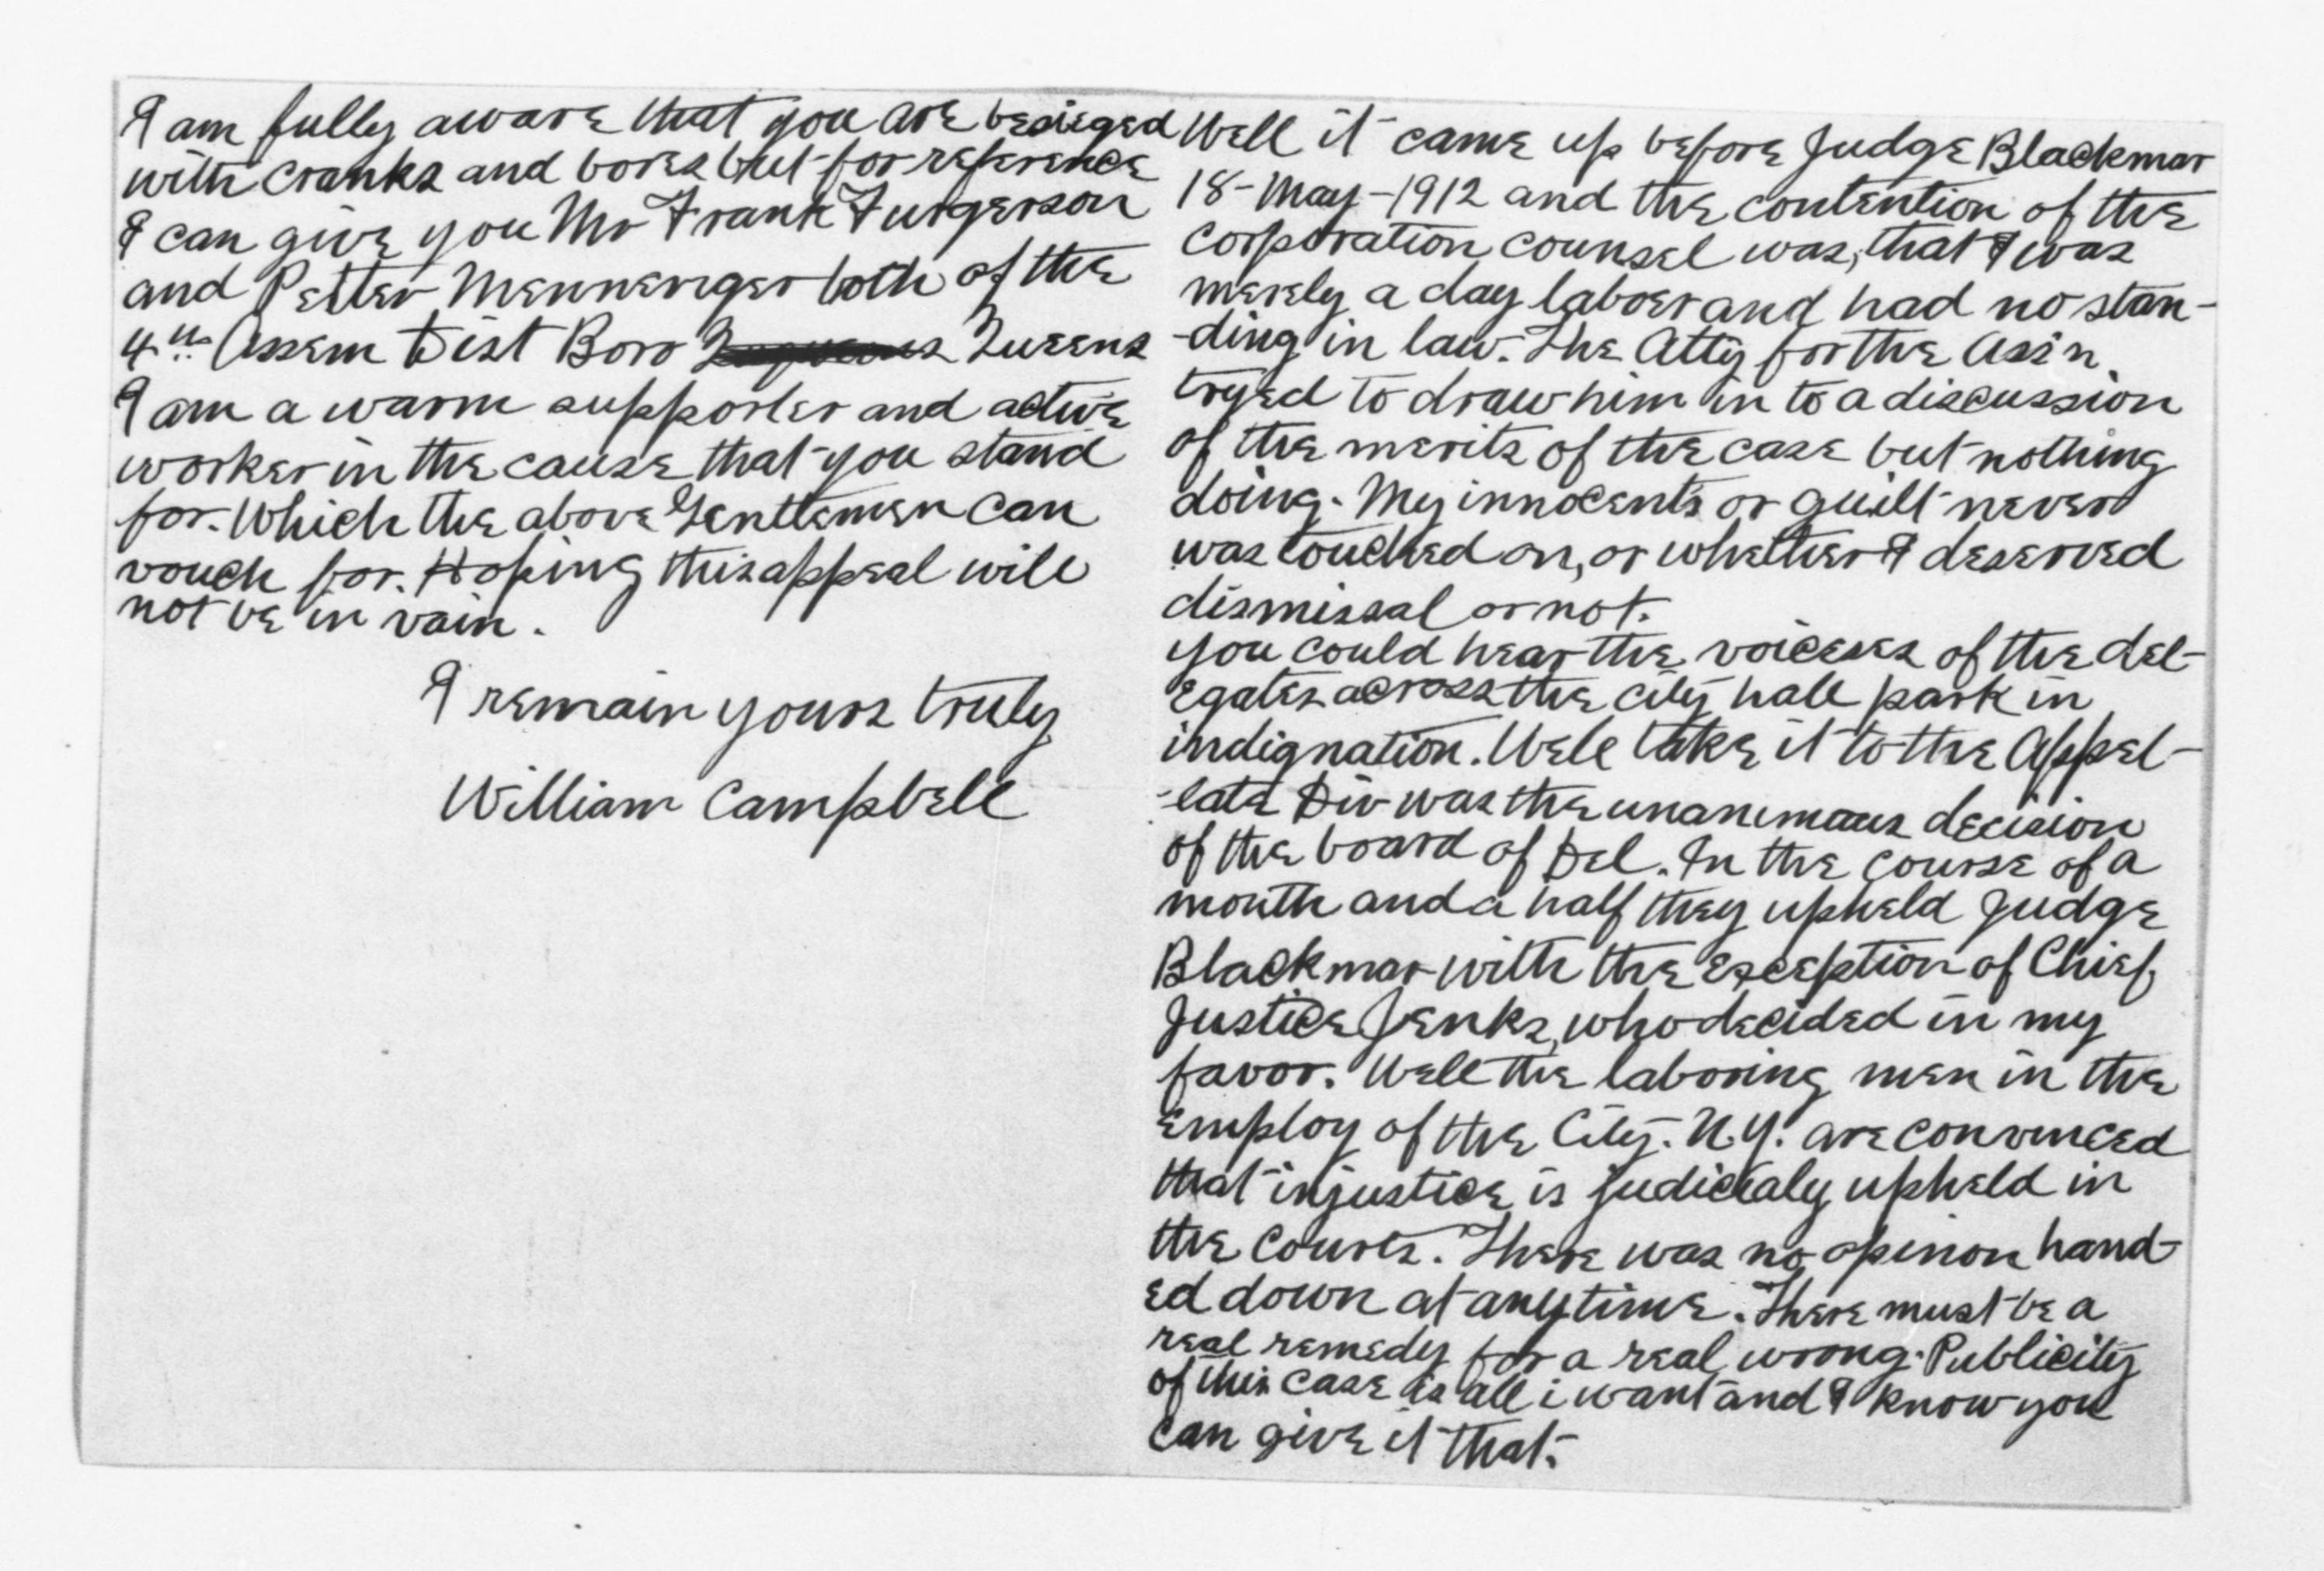 I am fully aware that you are besieged
with cranks and bores but for reference
I can give you Mr Frank Furgerson
and Petter Mennenger both of the
4th Assem Dist Boro Queens
I am a warm supporter and active
worker in the cause that you stand
for. Which the above Gentlemen can
vouch for. Hoping this appeal will
not be in vain.
I remain yours truly
William Campbell
Well it came up before Judge Blackmar
18-May-1912 and the contention of the
Corporation counsel was, that I was
merely a day laboer and had no stan-
-ding in law. The Atty for the Ass'n
tryed to draw him in to a discussion
of the merits of the case but nothing
doing. My innocents or guilt never
was touched on, or whether I deserved
dismissal or not.
You could hear the voiceses of the del-
egates across the city hall park in
indignation. Well take it to the Appel-
-late Div was the unanimous decision
of the board of Del. In the course of a
month and a half they upheld Judge
Blackmar with the exception of Chief
Justice Jenks, who decided in my
favor. Well the laboring men in the
employ of the City. N.Y. are convinced
that injustice is judicialy upheld in
the courts. There was no opinion hand-
ed down at anytime. There must be a
real remedy for a real wrong. Publicity
of this case is all i want and I know you
can give it that.